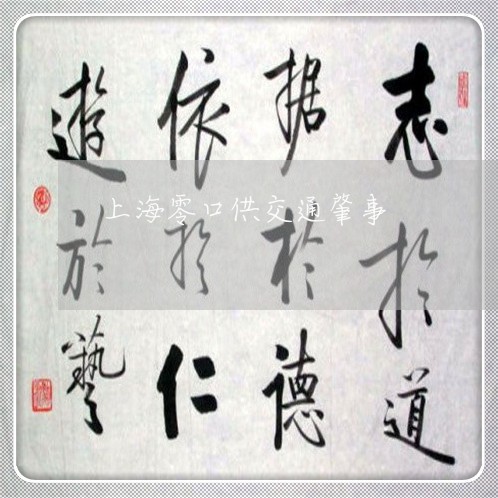 志於道
据於德
依於仁
遊於藝
上海零口供交通肇事